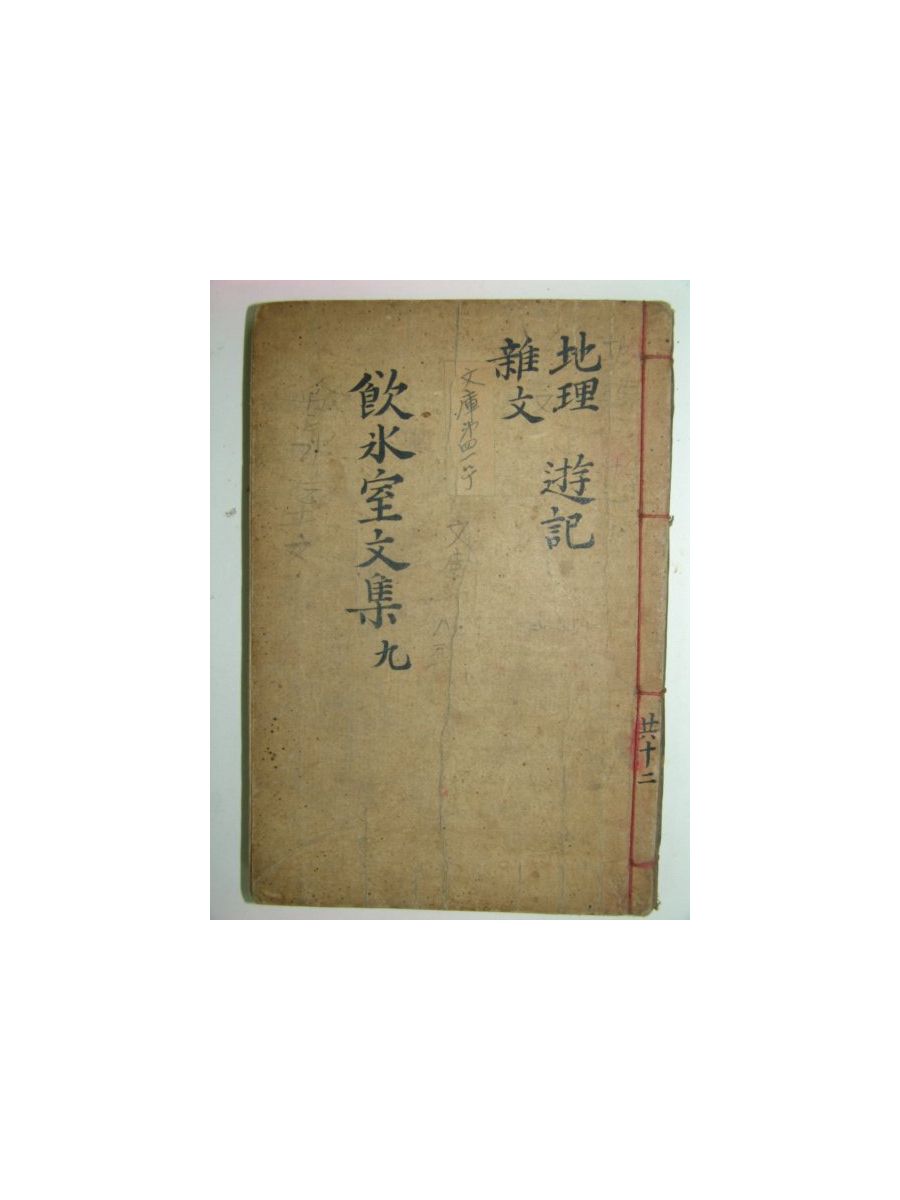 共十二
地理 遊記
雜文
文庫第四一号
飲氷室文集 九